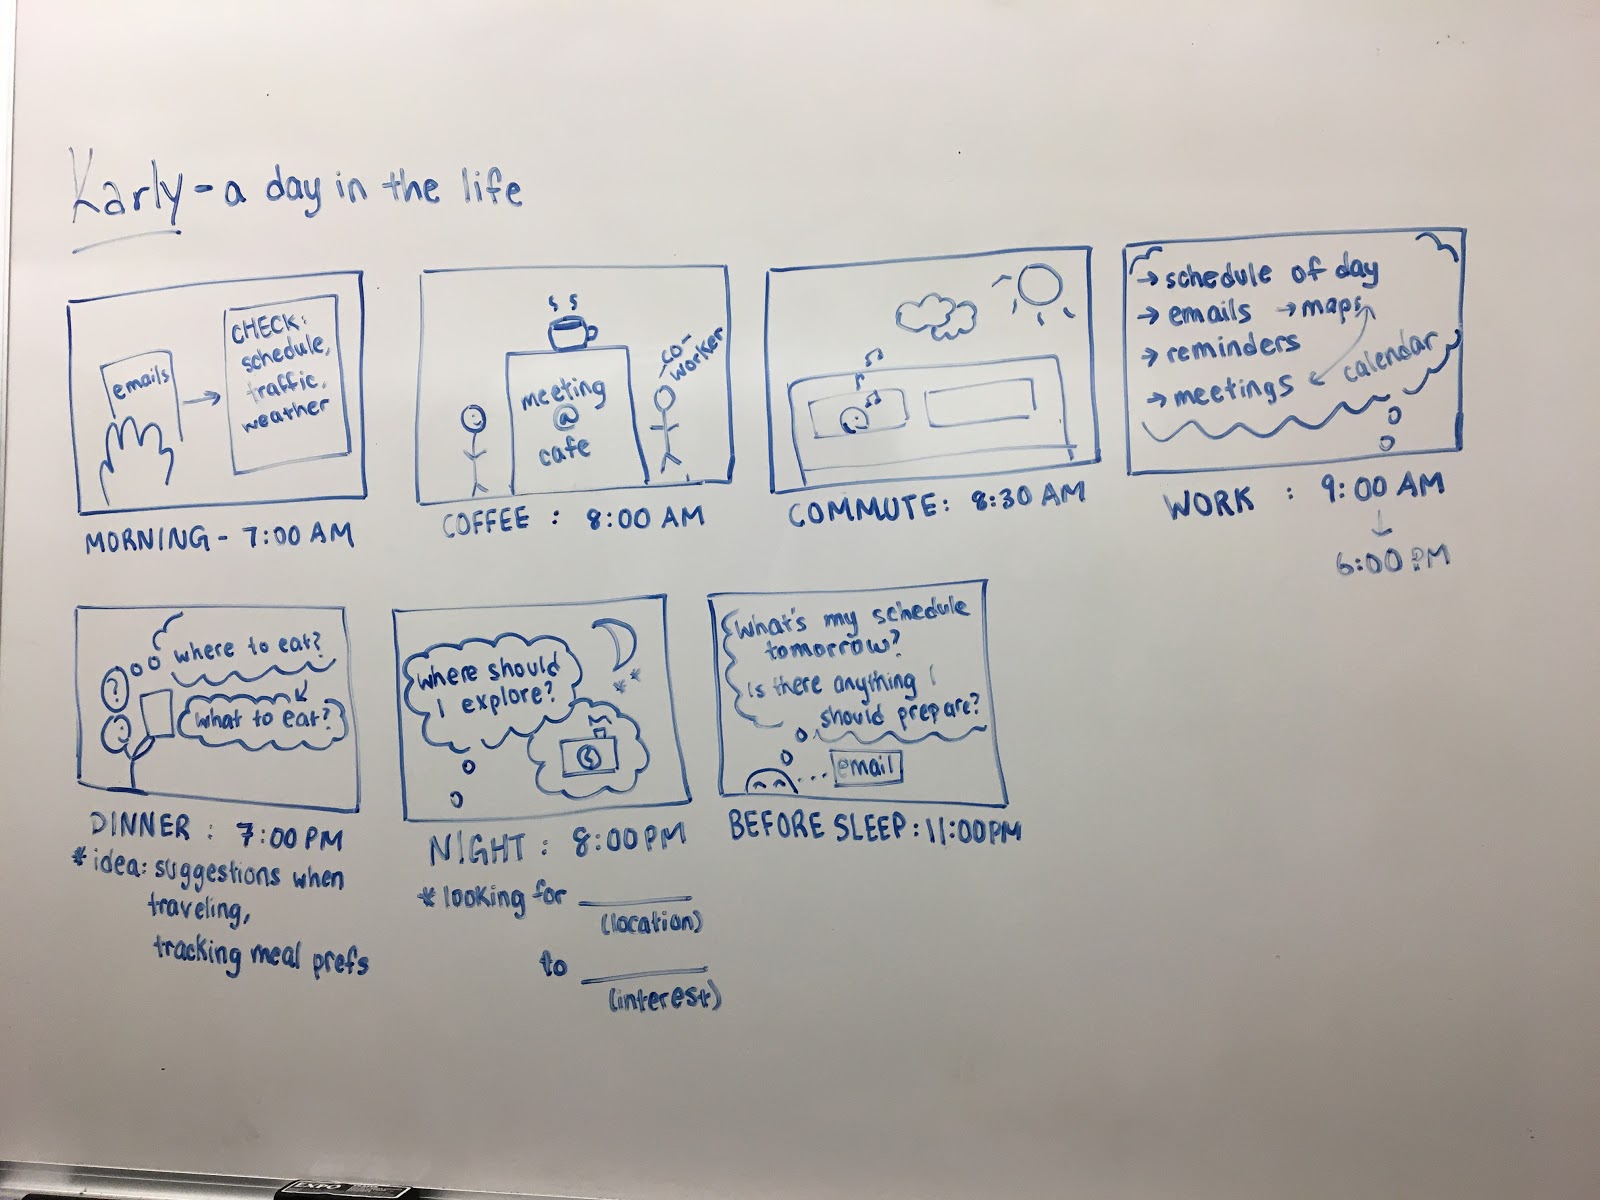 Karly - a day in the life
emails
CHECK:
schedule,
traffic,
weather
MORNING - 7:00 AM
meeting
@
cafe
co-
worker
COFFEE : 8:00 AM
COMMUTE: 8:30 AM
→ schedule of day
→ emails → maps
→ reminders
→ meetings
calendar
WORK : 9:00 AM
6:00 PM
?
where to eat?
what to eat?
DINNER : 7:00 PM
* idea: suggestions when
traveling,
tracking meal prefs
where should
I explore?
NIGHT : 8:00 PM
* looking for ______
(location)
to ______
(interest)
What's my schedule
tomorrow?
Is there anything I
should prepare?
email
BEFORE SLEEP: 11:00PM
EXPO